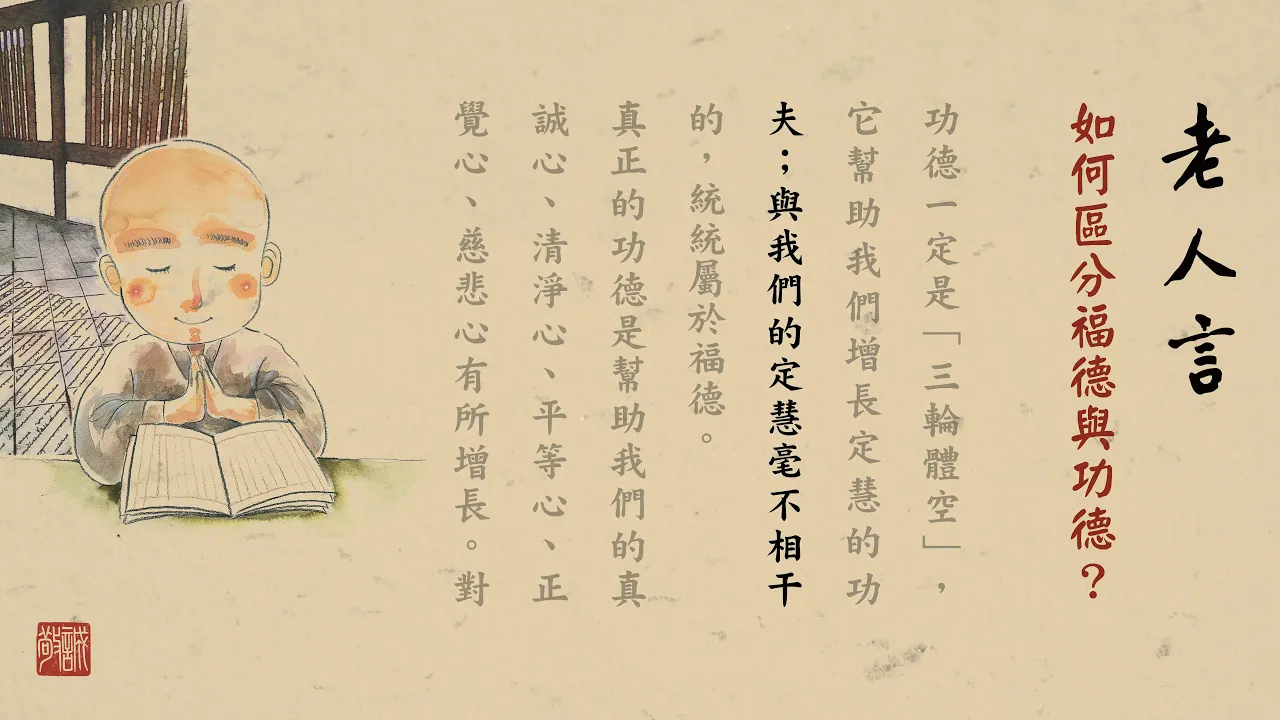 老人言
如何區分福德與功德？
功德一定是「三輪體空」，
它幫助我們增長定慧的功
夫；與我們的定慧毫不相干
的，統統屬於福德。
真正的功德是幫助我們的真
誠心、清淨心、平等心、正
覺心、慈悲心有所增長。對
誠敬